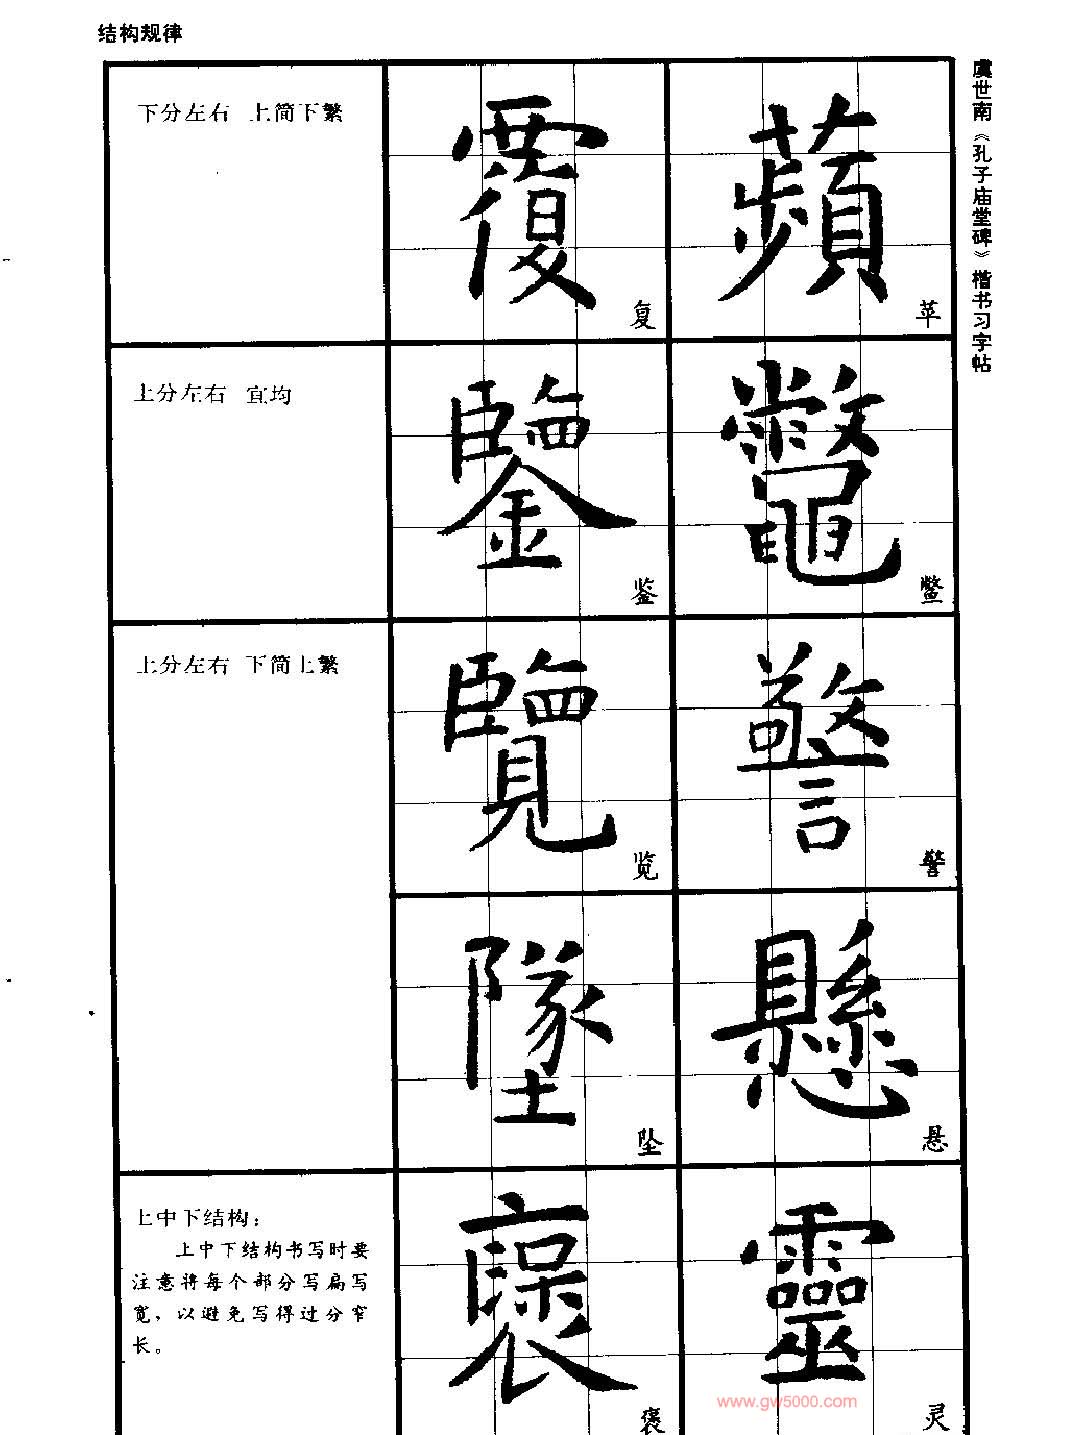 结构规律
虞世南《孔子庙堂碑》楷书习字帖
下分左右 上简下繁
覆
复
蘋
苹
上分左右 宜均
鑒
鉴
鼈
鳖
上分左右 下简上繁
覽
览
警
警
墜
坠
懸
悬
上中下结构：
上中下结构书写时要
注意将每个部分写扁写
宽，以避免写得过分窄
长。
褒
褒
靈
灵
www.gw5000.com